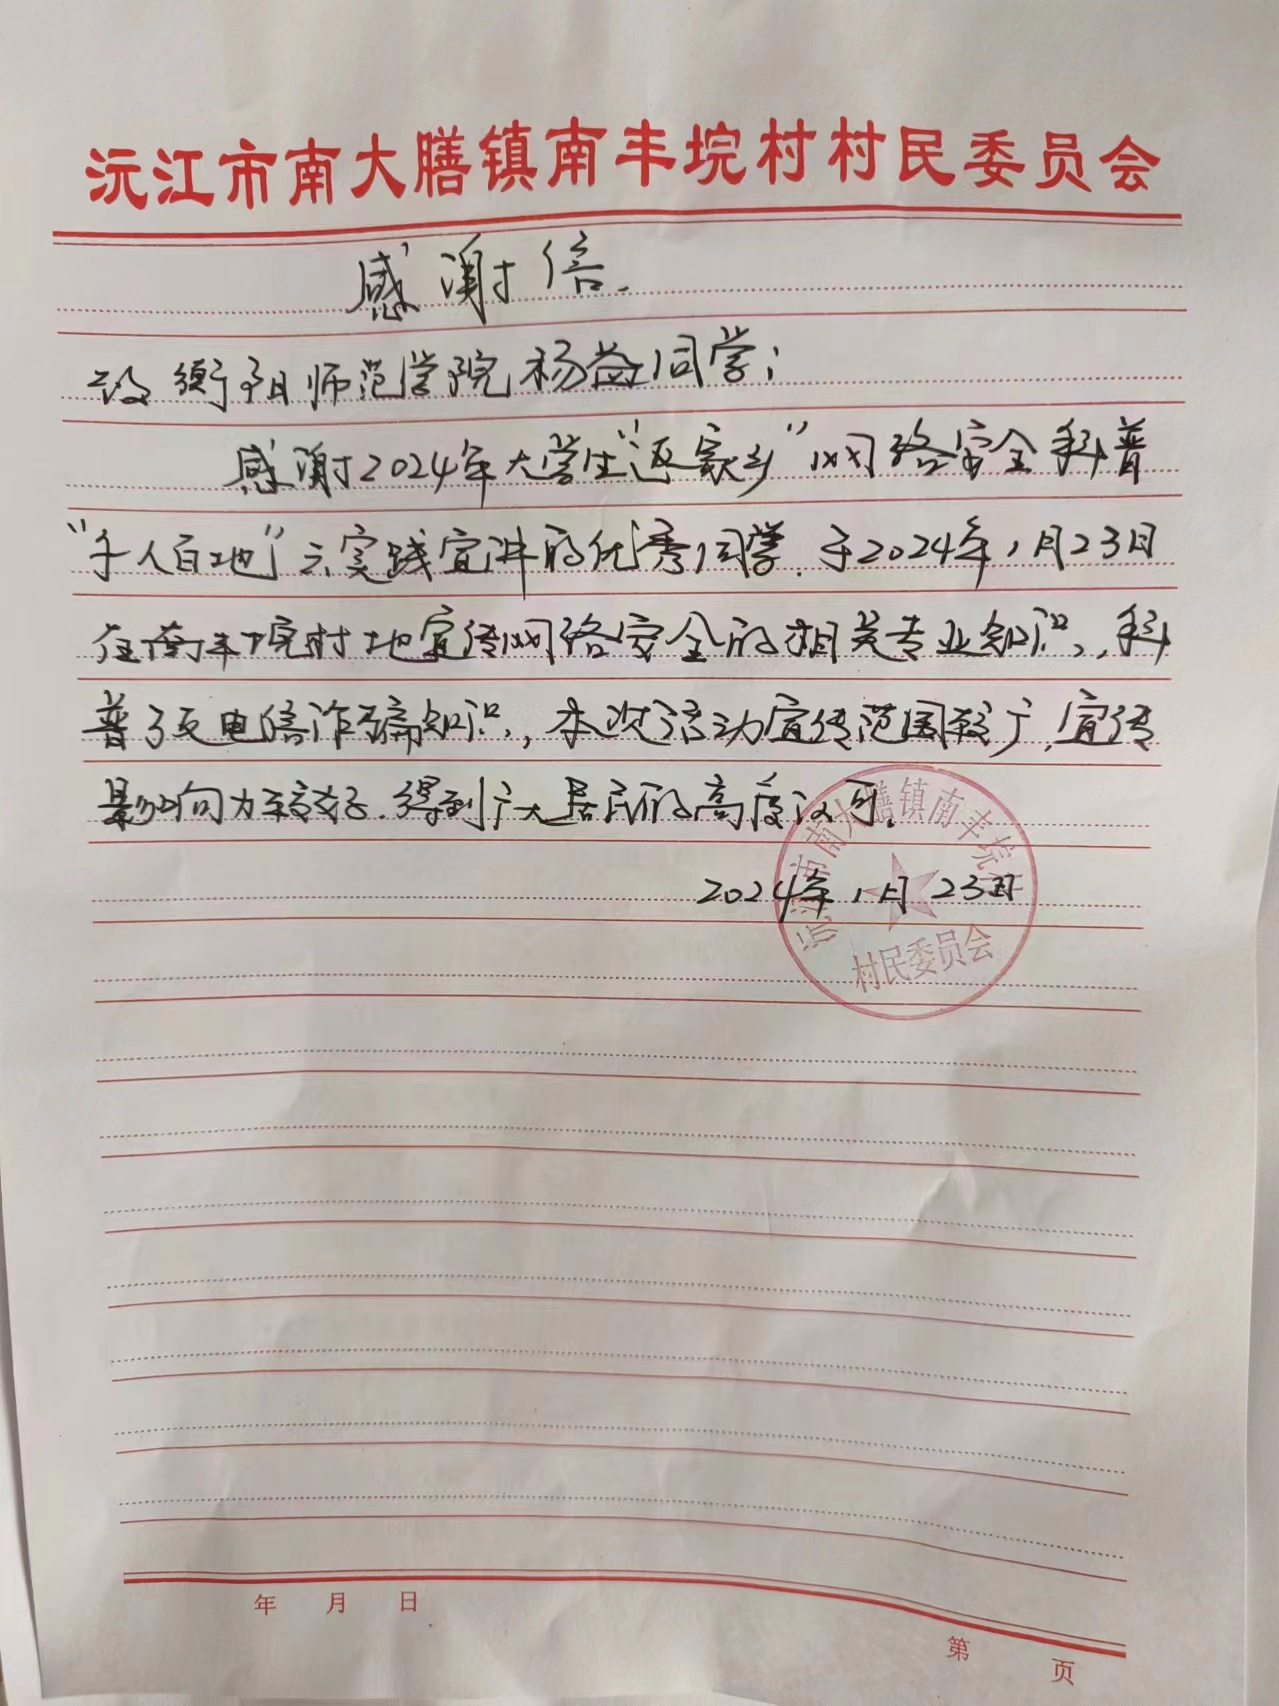 沅江市南大膳镇南丰垸村村民委员会
感谢信.
致衡阳师范学院杨益同学：
感谢2024年大学生"返家乡"网络安全科普
"千人百地"云实践宣讲的优秀同学.于2024年1月23日
在南丰垸村地宣传网络安全的相关专业知识，科
普了反电信诈骗知识，本次活动宣传范围较广，宣传
影响力较好.得到广大居民的高度认可。
2024年1月23日
沅江市南大膳镇南丰垸村
村民委员会
年 月 日
第 页